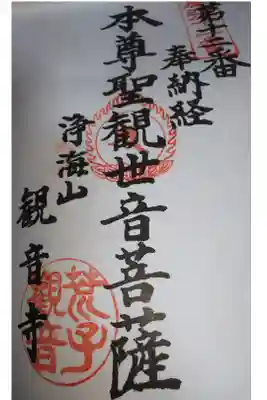 第十三番
奉納経
本尊聖観世音菩薩
浄海山
観音寺
荒子観音